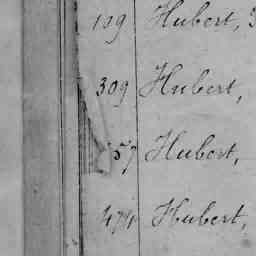 109 Hubert,
309 Hubert,
57 Hubert,
474 Hubert,